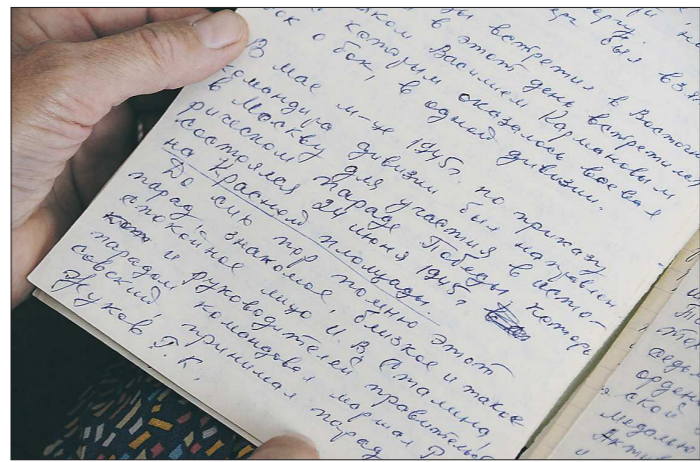 был взя
встретил в Восточ
в этот день встретил
ком Василием Кармановым
которым оказалось воевал
бок о бок, в одной дивизии.
В мае м-це 1945г. по приказу
командира дивизии был направлен
в Москву для участия в исто-
рическом параде Победы, которы
состоялся 24 июня 1945г
на Красной площади.
До сих пор помню этот
парад, знакомое, близкое и такое
спокойное лицо И.В. Сталина
и руководителей правительс
парадом командовал маршал Р
совский, принимал парад
Жуков Г.К.
седьм
орден
ской
медалью
Актив